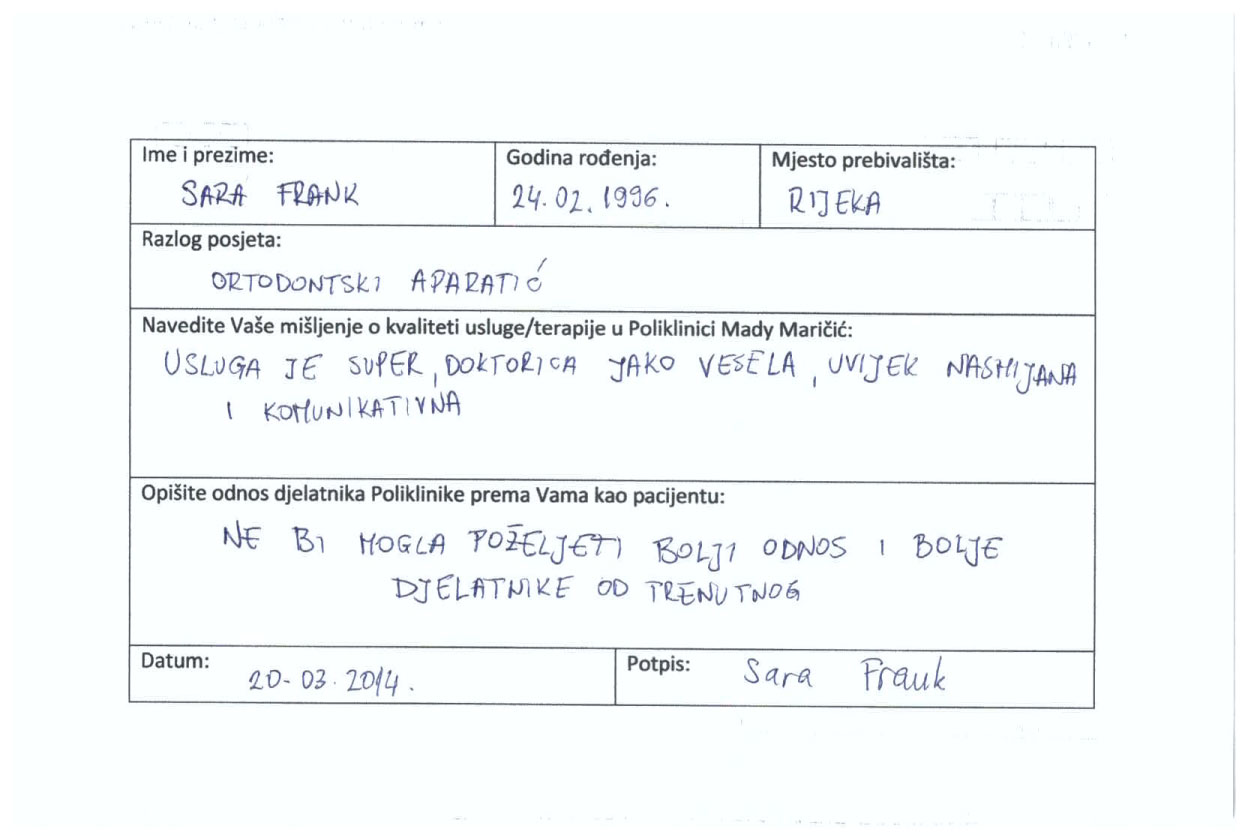 Ime i prezime:
SARA FRANK
Godina rođenja:
24.02.1996.
Mjesto prebivališta:
RIJEKA
Razlog posjeta:
ORTODONTSKI APARATIĆ
Navedite Vaše mišljenje o kvaliteti usluge/terapije u Poliklinici Mady Maričić:
USLUGA JE SUPER, DOKTORICA JAKO VESELA, UVIJEK NASMIJANA
I KOMUNIKATIVNA
Opišite odnos djelatnika Poliklinike prema Vama kao pacijentu:
NE BI MOGLA POŽELJETI BOLJI ODNOS I BOLJE
DJELATNIKE OD TRENUTNOG
Datum:
20-03.2014.
Potpis:
Sara Frank